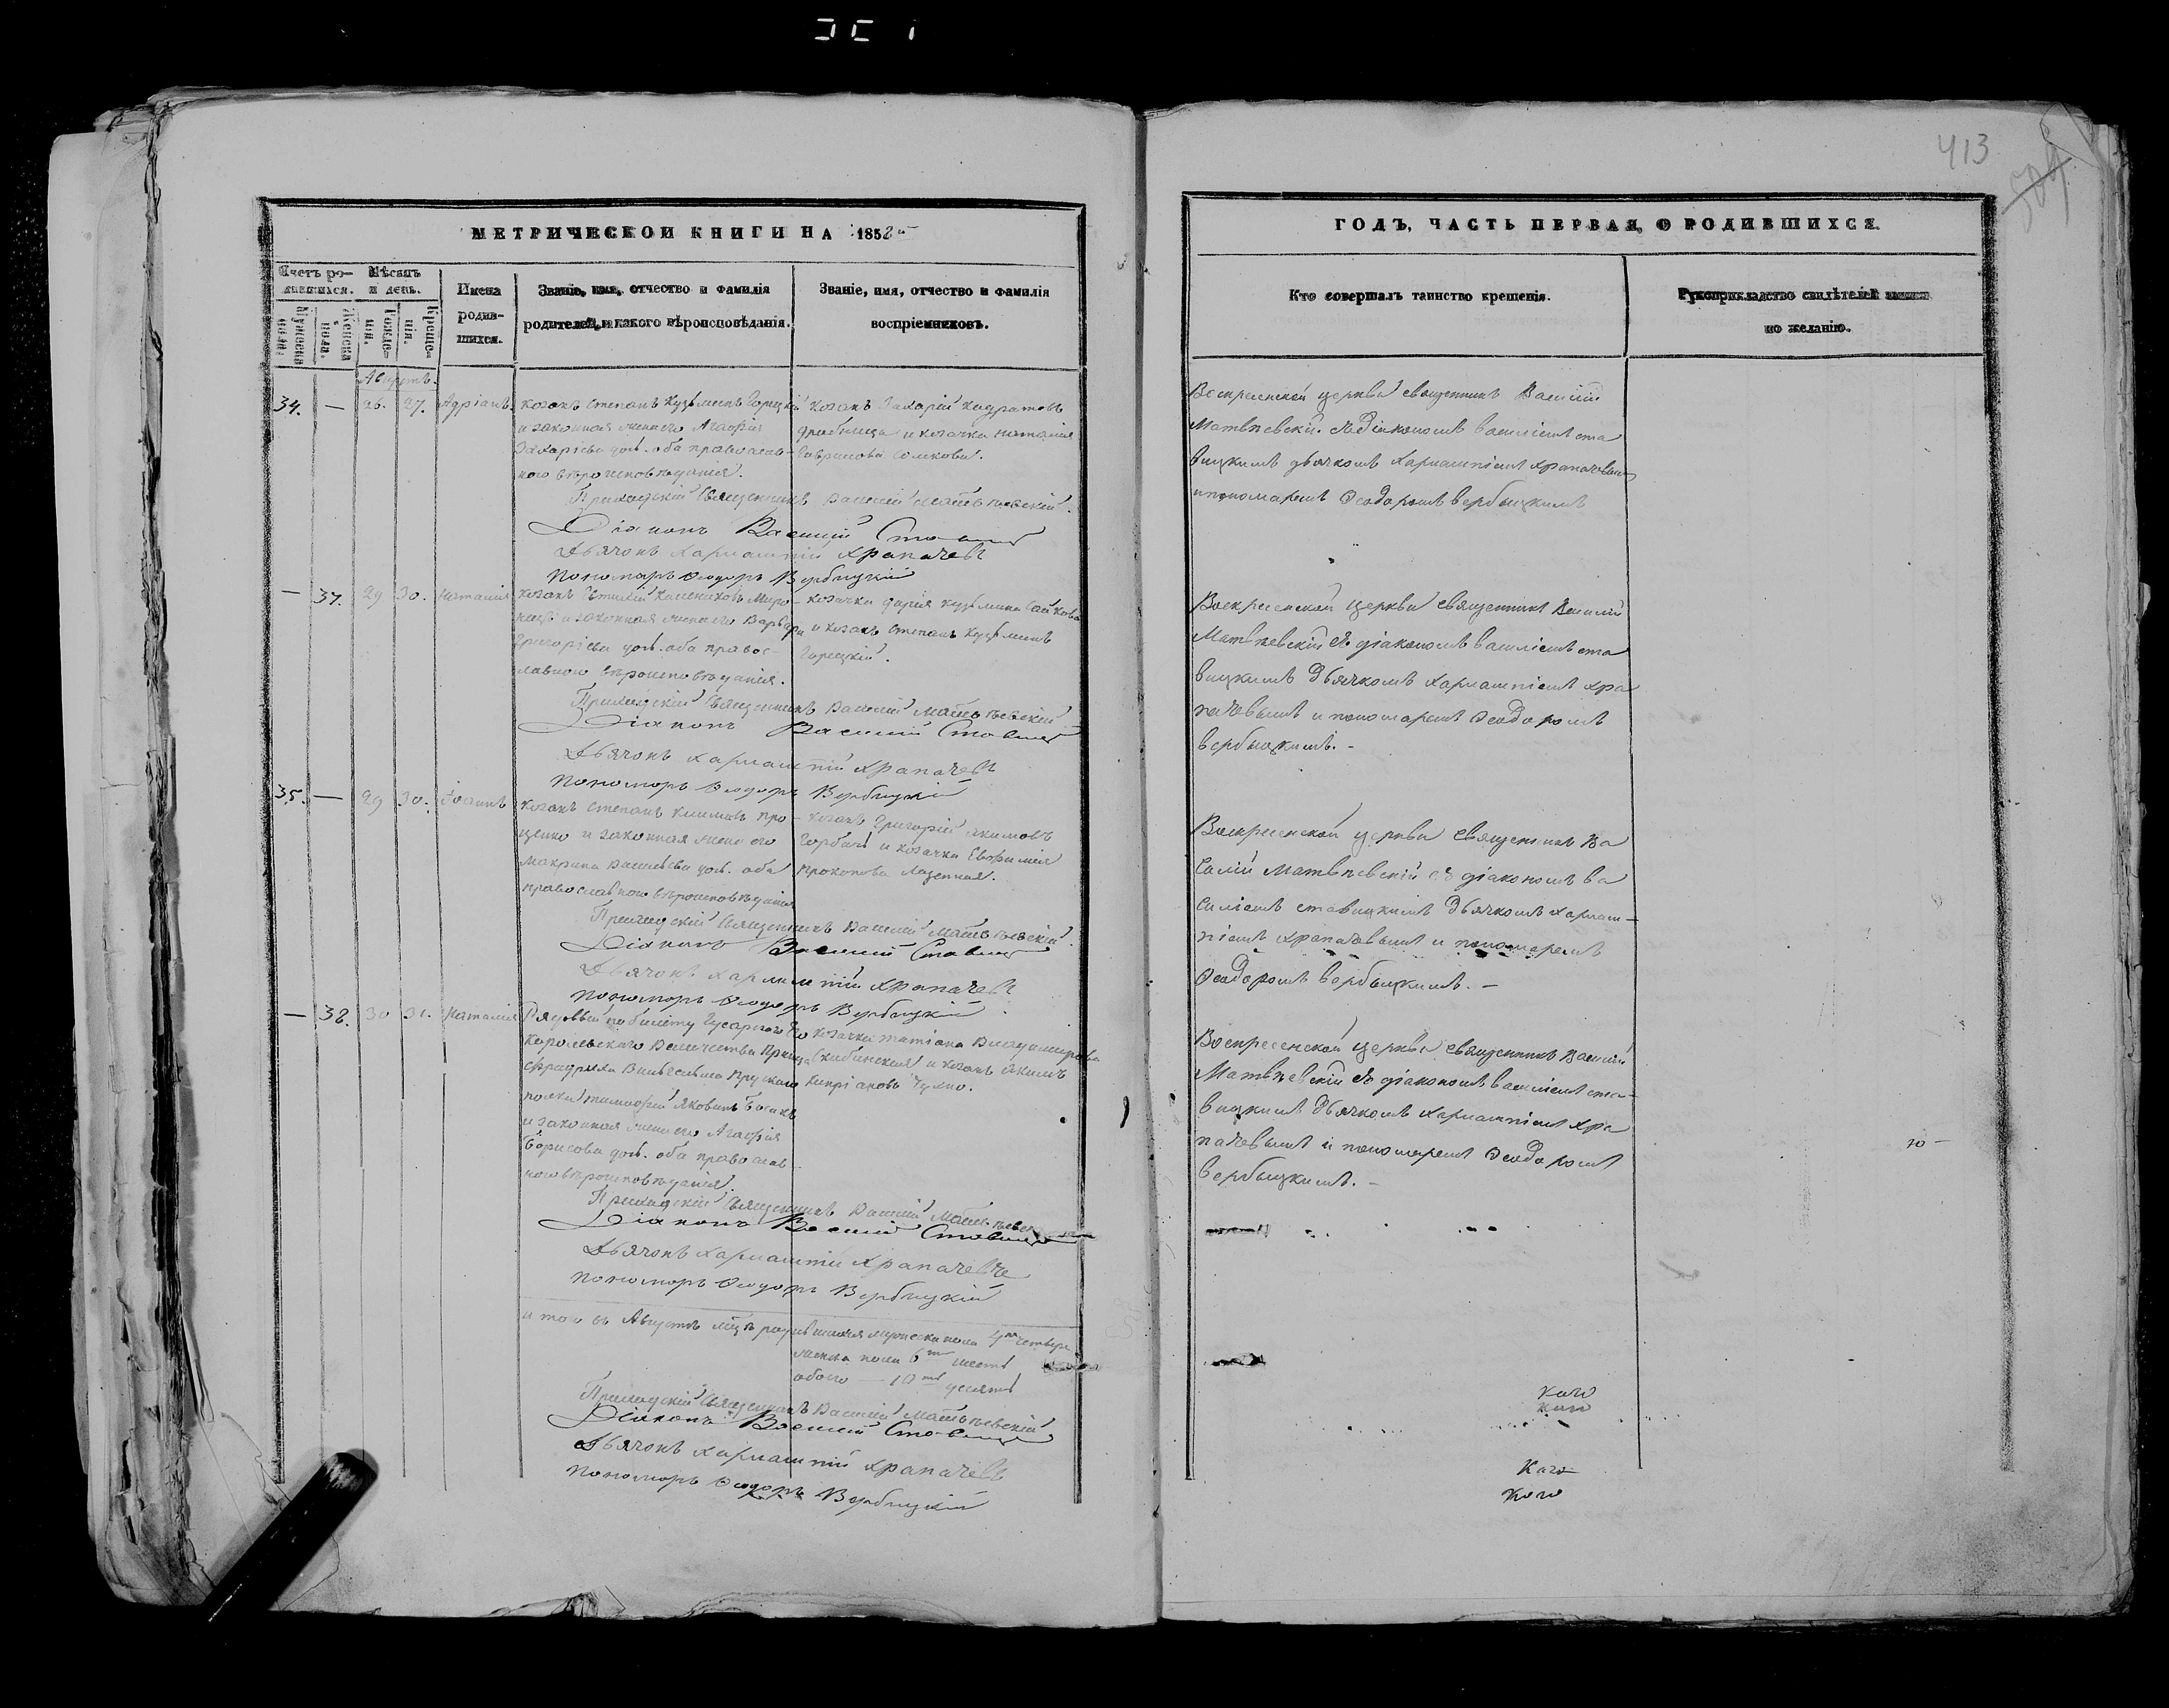 413
МЕТРИЧЕСКОЙ КНИГИ НА 1852й
ГОДЪ, ЧАСТЬ ПЕРВАЯ, О РОДИВШИХСЯ.
Счетъ ро-
дившихся.
Мѣсяцъ
и день.
Мужеска
пола.
Женска
пола.
Рожде-
нія.
Креще-
нія.
Имена
родив-
шихся.
Званіе, имя, отчество и фамилія
родителей, и какого вѣроисповѣданія.
Званіе, имя, отчество и фамилія
воспріемниковъ.
Кто совершалъ таинство крещенія.
Рукоприкладство свидѣтелей записи
по желанію.
Августъ.
34. — 26. 27. Адріанъ.
козакъ Степанъ Кузьминъ Горецкій
и законная жена его Агафія
Захаріева дочь. оба православ-
ного вѣроисповѣданія.
козакъ Захарій
и козачка Наталія
Гаврилова
Воскресенской церкви священникъ Василій
Матвѣевскій. съ діакономъ василіемъ ста
вицкимъ дьячкомъ Харлампіемъ Храпачевымъ
и пономаремъ Ѳеодоромъ вербицкимъ
Приходскій Священникъ Василій Матвѣевскій.
Діаконъ Василій
Дьячокъ Харлампій Храпачевъ
Пономарь Ѳеодоръ Вербицкій
— 37. 29 30. Наталія
козакъ
и законная жена его Варвара
Григоріева дочь. оба правос-
лавного вѣроисповѣданія.
козачка Дарія Кузьмина
и козакъ Степанъ Кузьминъ
Горецкій.
Воскресенской церкви священникъ Василій
Матвѣевскій съ діакономъ василіемъ ста
вицкимъ дьячкомъ Харлампіемъ Хра
пачевымъ и пономаремъ Ѳеодоромъ
вербицкимъ. -
Приходскій Священникъ Василій Матвѣевскій
Діаконъ Василій
Дьячокъ Харлампій Храпачевъ
Пономарь Ѳеодоръ Вербицкій
35. — 29 30. Іоаннъ
козакъ Степанъ Климовъ Про-
ценко и законная жена его
Макрина Васильева дочь. оба
православного вѣроисповѣданія
козакъ Григорій Якимовъ
Горбачъ и козачка Евфимія
Прокопова
Воскресенской церкви священникъ Ва
силій Матвѣевскій съ діакономъ Ва
силіемъ ставицкимъ дьячкомъ Харлам-
піемъ Храпачевымъ и пономаремъ
Ѳеодоромъ вербицкимъ. —
Приходскій Священникъ Василій Матвѣевскій.
Діаконъ Василій
Дьячокъ Харлампій Храпачевъ
Пономарь Ѳеодоръ Вербицкій
— 38. 30 31. Наталія
Рядовый по билету Гусарского Его
Королевского Величества Принца
Фридриха Вильгельма Прусского
полка Тимофей Яковлевъ
и законная жена его Агафія
Борисова дочь. оба православ-
ного вѣроисповѣданія.
козачка Татіана Владимирова
и козакъ Якимъ
Кипріановъ
Воскресенской церкви священникъ Василій
Матвѣевскій съ діакономъ василіемъ ста-
вицкимъ дьячкомъ Харлампіемъ Хра
пачевымъ и пономаремъ Ѳеодоромъ
вербицкимъ. -
Приходскій Священникъ Василій
Діаконъ Василій
Дьячокъ Харлампій
Пономарь Ѳеодоръ Вербицкій
итого въ Августѣ родившихся мужеска пола 4
женска пола 6 шесть
обоего — 10 десять
Приходскій Священникъ Василій Матвѣевскій
Діаконъ Василій
Дьячокъ Харлампій Храпачевъ
Пономарь Ѳеодоръ Вербицкій